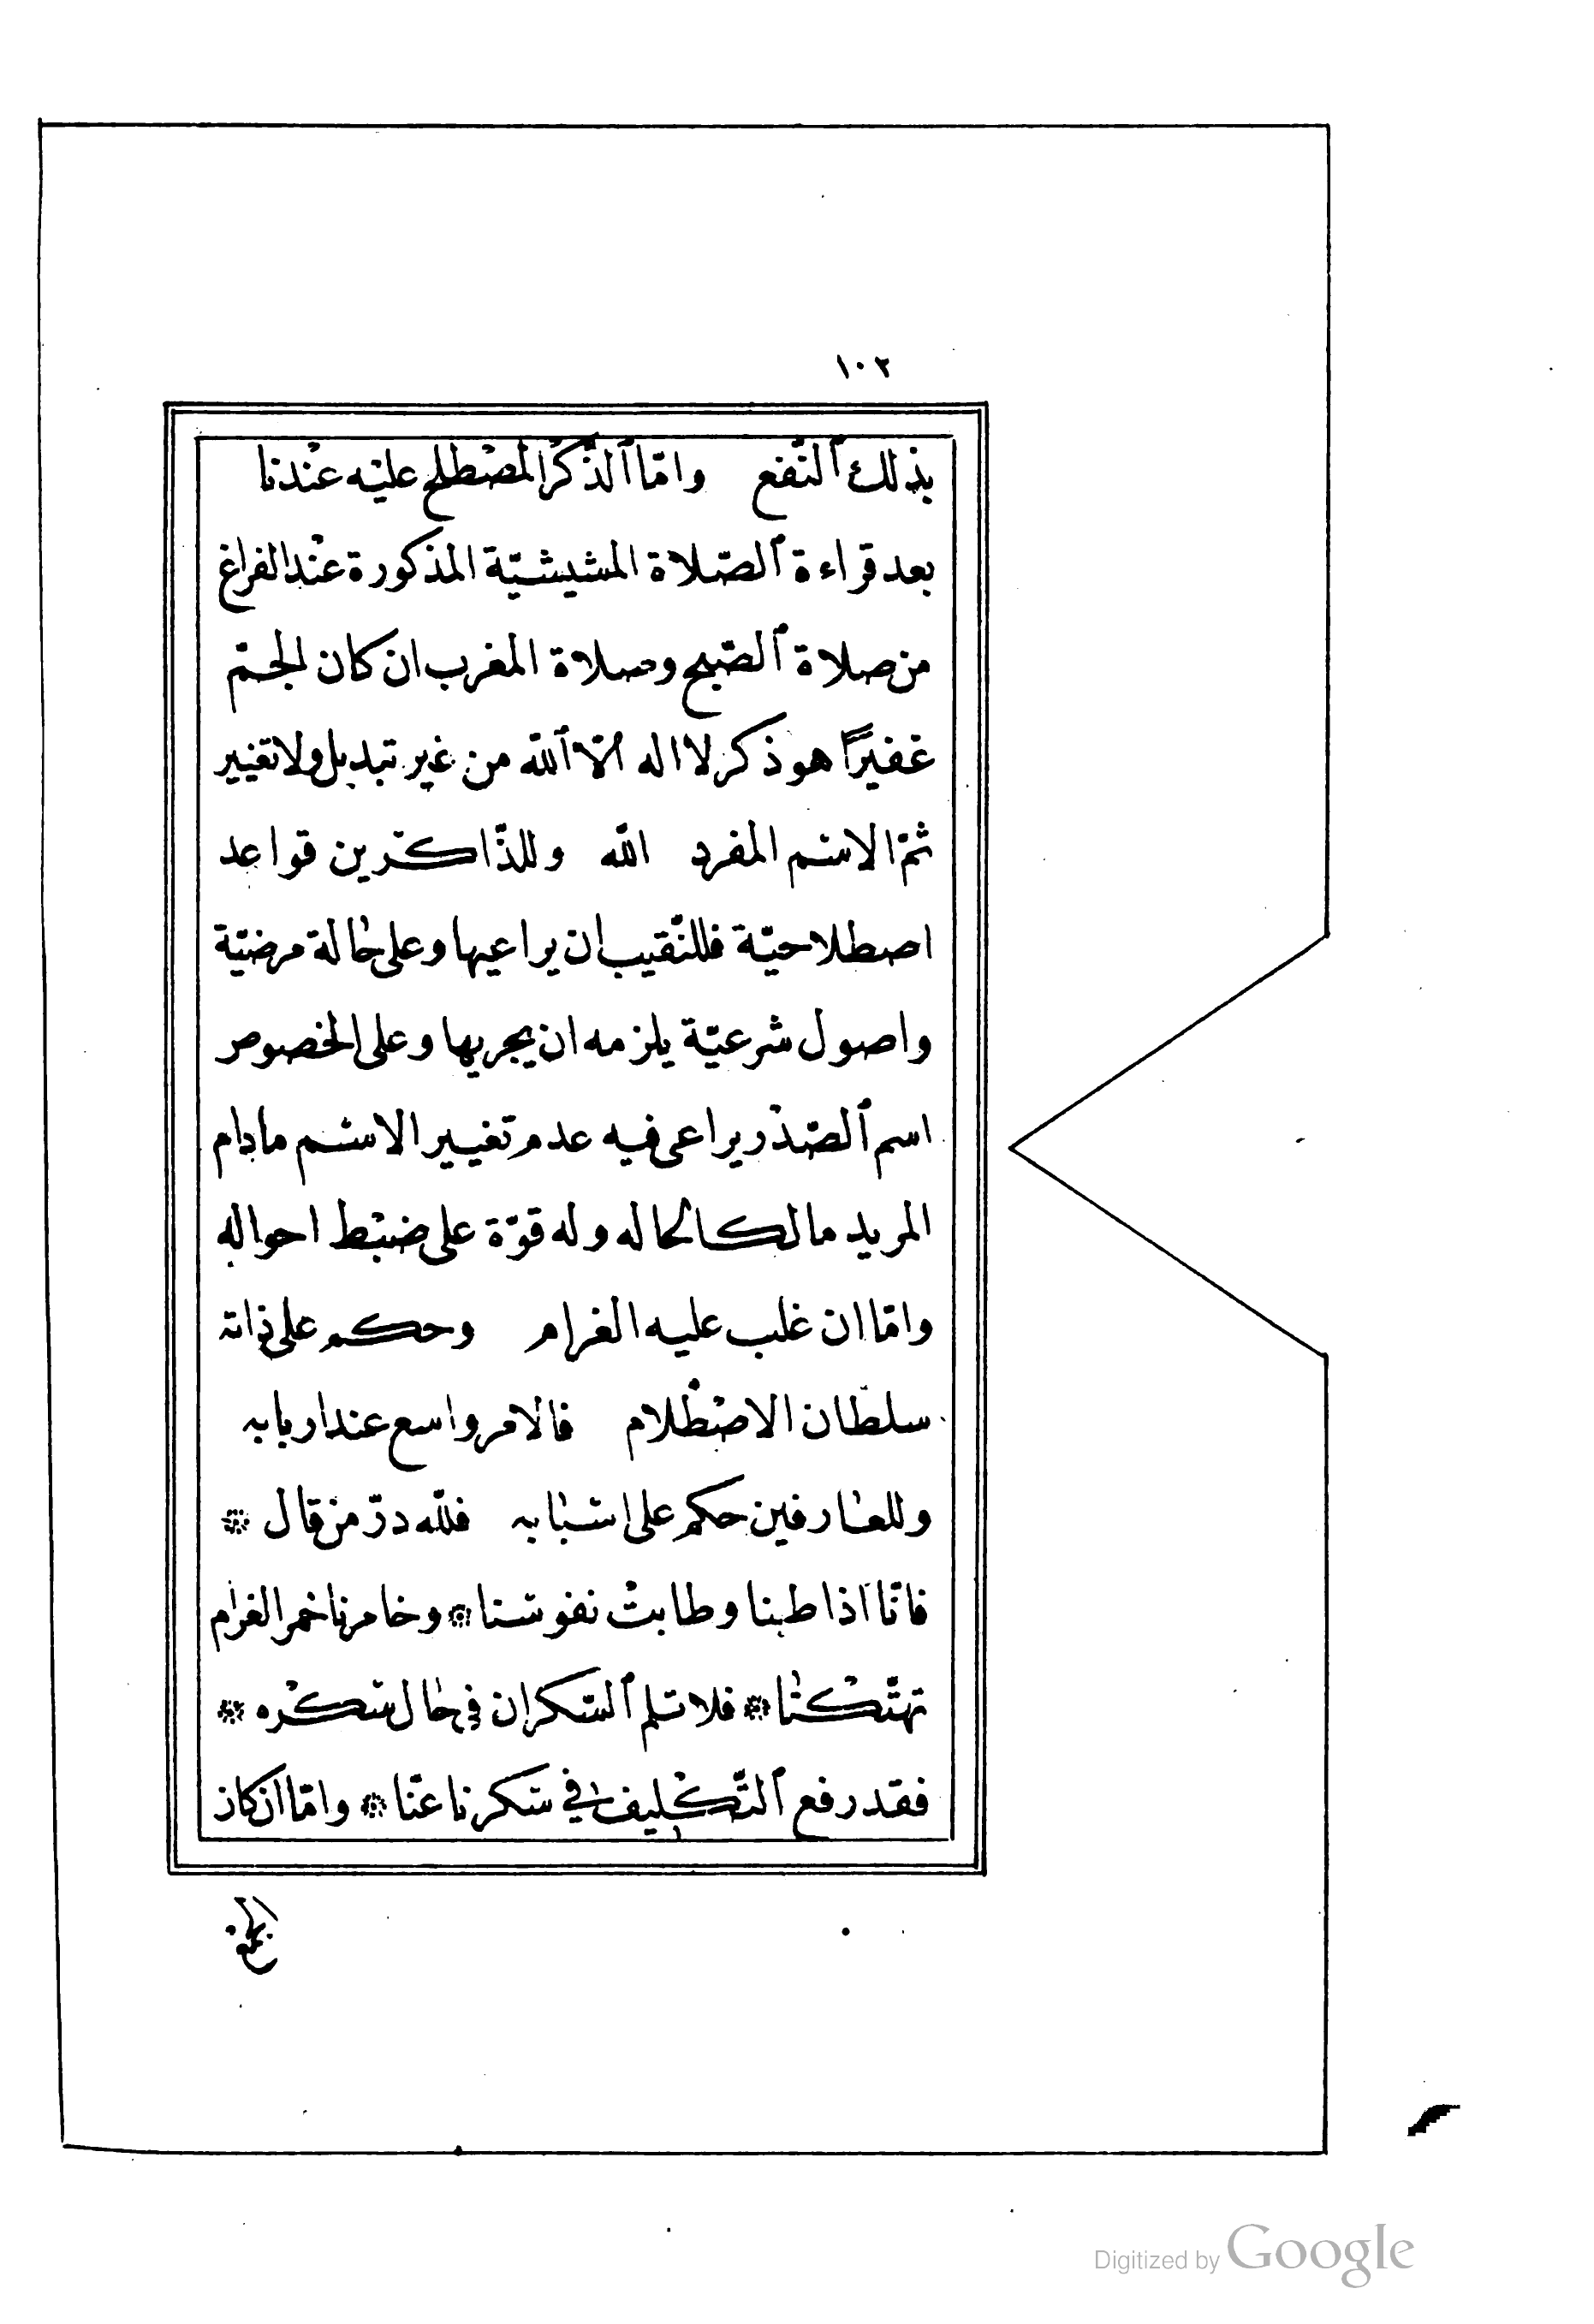 ١٠٢
بذلك ٱلنّفع وامّا ٱلذّكرْ المصْطلح عليْه عنْدنا
بعد قراءة ٱلصّلاة المشيشيّة المذكورة عنْد الفراغ
من صلاة ٱلصّبح وصلاة المغرب ان كان الجمّ
غفيرًا هو ذكر لا اله الّا ٱللّه من غير تبديل ولا تغيير
ثمّ الاسْم المفرد اللّه وللذّاكرين قواعد
اصطلاحيّة فللنّقيب ان يراعيها وعلى حالة مرضيّة
واصول شرعيّة يلزمه ان يجريها وعلى الخصوص
اسم ٱلصّدْر يراعى فيه عدم تغيير الاسْم مادام
المريد مالكا لحاله وله قوّة على ضبْط احواله
وامّا ان غلب عليه الغرام وحكم على ذاته
سلطان الاصْطلام فالامر واسع عند اربابه
وللعارفين حكم على اسْبابه فللّه درّ من قال *
فانّا اذا طبنا وطابتْ نفوسنا * وخامرنا خمر الغرام
تهتّكنا * فلا تلم ٱلسّكران في حال سكْره *
فقد رفع ٱلتّكْليف في سكرنا عنّا * وامّا ان كان
الجمع
Digitized by Google